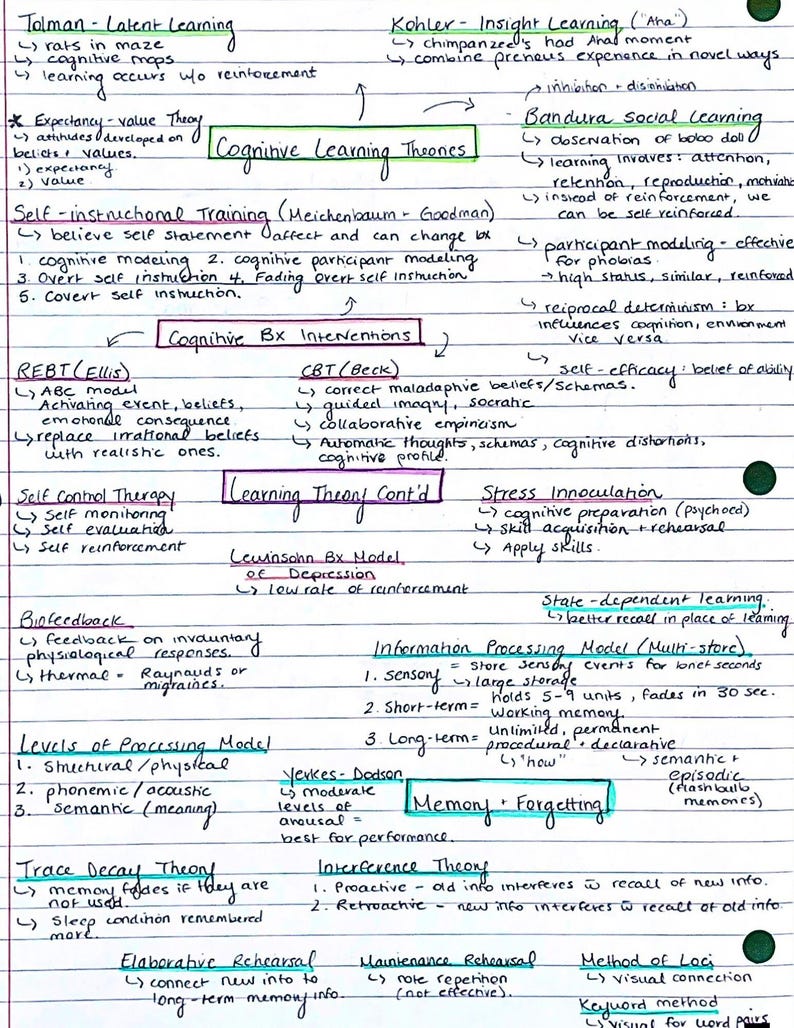 Tolman - Latent Learning
↳ rats in maze
↳ cognitive maps
↳ learning occurs w/o reinforcement
Kohler - Insight Learning ("Aha")
↳ chimpanzee's had Aha moment
↳ combine previous experience in novel ways
* Expectancy-value Theory
↳ attitudes developed on
beliefs + values.
1) expectancy
2) value
Cognitive Learning Theories
→ inhibition + disinhibition
Bandura Social Learning
↳ observation of bobo doll
↳ learning involves: attention,
retention, reproduction, motivati
↳ instead of reinforcement, we
can be self reinforced.
↳ participant modeling - effective
for phobias.
→ high status, similar, reinforced
↳ reciprocal determinism: bx
influences cognition, environment
vice versa
↳ self-efficacy: belief of ability
Self-instructional Training (Meichenbaum + Goodman)
↳ believe self statement affect and can change bx
1. cognitive modeling 2. cognitive participant modeling
3. Overt self instruction 4. Fading Overt self instruction
5. Covert self instruction.
Cognitive Bx Interventions
REBT (Ellis)
↳ ABC model
Activating event, beliefs,
emotional consequence
↳ replace irrational beliefs
with realistic ones.
CBT (Beck)
↳ correct maladaptive beliefs/schemas.
↳ guided imagry, socratic
↳ collaborative empiricism
↳ Automatic thoughts, schemas, cognitive distortions,
cognitive profile.
Learning Theory Cont'd
Self Control Therapy
↳ Self monitoring
↳ Self evaluation
↳ Self reinforcement
Stress Innoculation
↳ cognitive preparation (psychoed)
↳ skill acquisition + rehearsal
↳ Apply skills.
Lewinsohn Bx Model
of Depression
↳ low rate of reinforcement
Biofeedback
↳ feedback on involuntary
physiological responses.
↳ thermal = Raynauds or
migraines.
State-dependent learning.
↳ better recall in place of learning
Information Processing Model (Multi-store)
1. Sensory = store sensory events for brief seconds
↳ large storage
2. Short-term = holds 5-9 units, fades in 30 sec.
working memory
3. Long-term = Unlimited, permanent
procedural + declarative
↳ "how"
↳ semantic +
episodic
(flashbulb
memories)
Levels of Processing Model
1. Structural/physical
2. phonemic/acoustic
3. semantic (meaning)
Yerkes-Dodson
↳ moderate
levels of
arousal =
best for performance.
Memory + Forgetting
Trace Decay Theory
↳ memory fades if they are
not used.
↳ Sleep condition remembered
more.
Interference Theory
1. Proactive - old info interferes w̄ recall of new info.
2. Retroactive - new info interferes w̄ recall of old info.
Elaborative Rehearsal
↳ connect new info to
long-term memory info.
Maintenance Rehearsal
↳ rote repetition
(not effective).
Method of Loci
↳ visual connection
Keyword method
↳ visual for word pairs